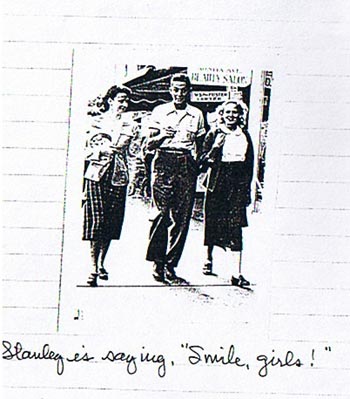 BEAUTY SALON
Stanley is saying, "Smile, girls!"